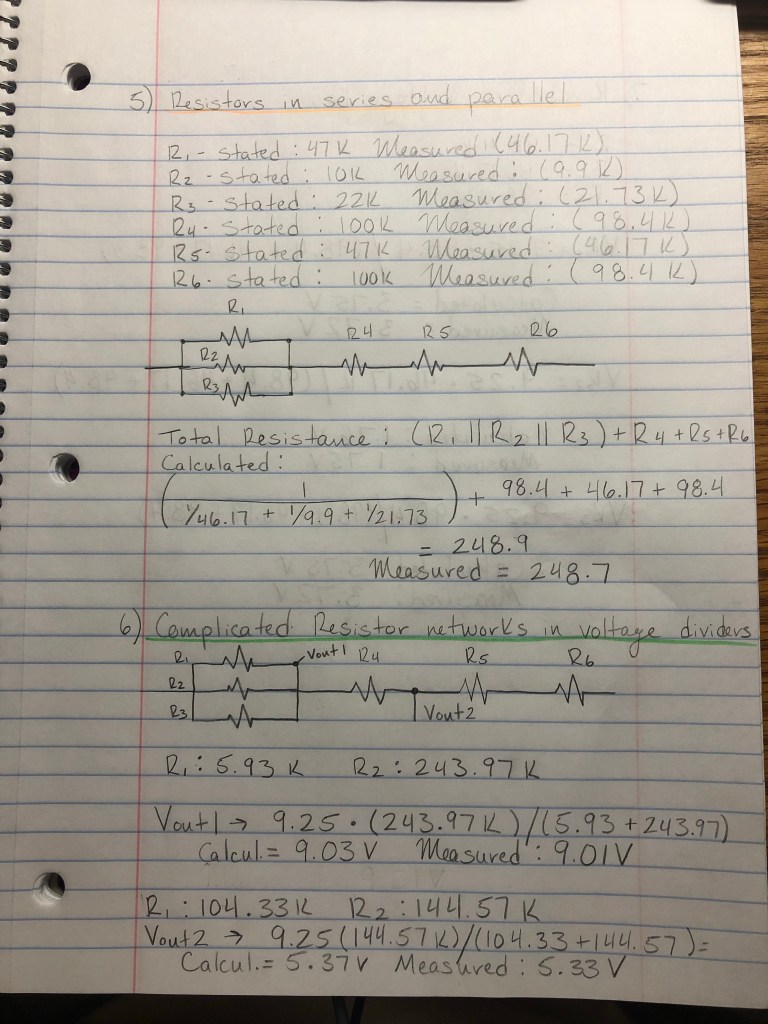 5) Resistors in series and parallel
R1 - stated : 47K Measured : (46.17K)
R2 - stated : 10K Measured : (9.9K)
R3 - stated : 22K Measured : (21.73K)
R4 - stated : 100K Measured : (98.4K)
R5 - stated : 47K Measured : (46.17K)
R6 - stated : 100K Measured : (98.4K)
R1
R2 R4 R5 R6
R3
Total Resistance : (R1 || R2 || R3) + R4 + R5 + R6
Calculated :
(1 / (1/46.17 + 1/9.9 + 1/21.73)) + 98.4 + 46.17 + 98.4
= 248.9
Measured = 248.7
6) Complicated Resistor networks in voltage dividers
R1 Vout1 R4 R5 R6
R2
R3 Vout2
R1 : 5.93 K R2 : 243.97 K
Vout1 → 9.25 · (243.97K)/(5.93 + 243.97)
Calcul. = 9.03 V Measured : 9.01V
R1 : 104.33K R2 : 144.57 K
Vout2 → 9.25(144.57K)/(104.33 + 144.57) =
Calcul. = 5.37V Measured : 5.33 V